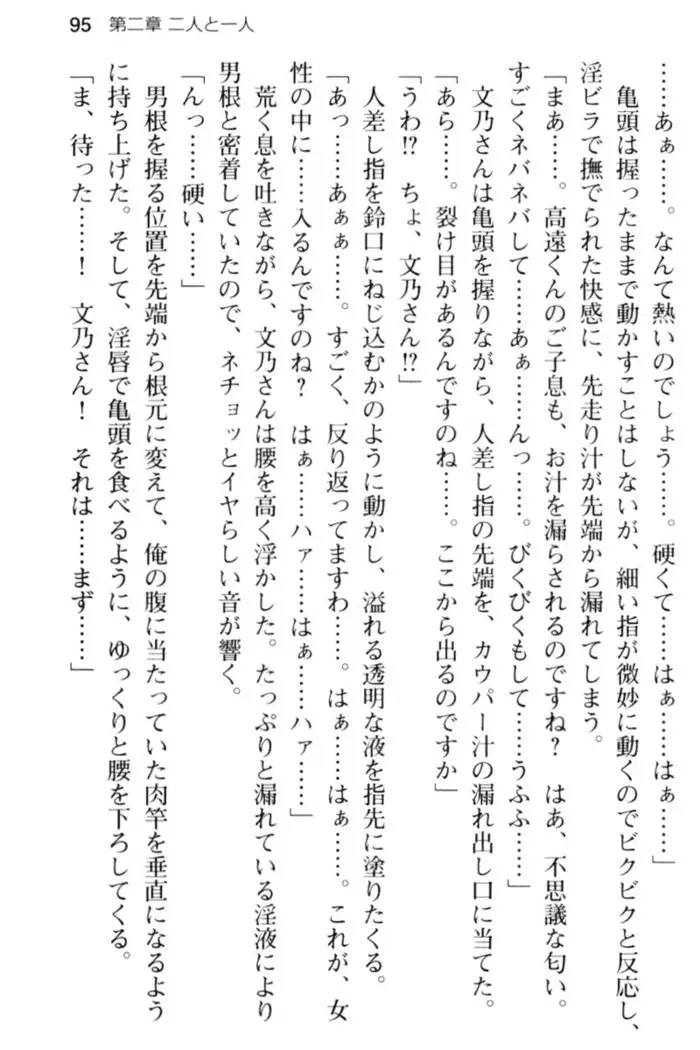 95 第二章 二人と一人
……あぁ……。なんて熱いのでしょう……。硬くて……はぁ……はぁ……」
　亀頭は握ったままで動かすことはしないが、細い指が微妙に動くのでビクビクと反応し、
淫ビラで撫でられた快感に、先走り汁が先端から漏れてしまう。
「まあ……。高遠くんのご子息も、お汁を漏らされるのですね？　はあ、不思議な匂い。
すごくネバネバして……あぁ……んっ……。びくびくもして……うふふ……」
　文乃さんは亀頭を握りながら、人差し指の先端を、カウパー汁の漏れ出し口に当てた。
「あら……。裂け目があるんですのね……。ここから出るのですか」
「うわ!?　ちょ、文乃さん!?」
　人差し指を鈴口にねじ込むかのように動かし、溢れる透明な液を指先に塗りたくる。
「あっ……あぁぁ……。すごく、反り返ってますわ……。はぁ……はぁ……。これが、女
性の中に……入るんですのね？　はぁ……ハァ……はぁ……ハァ……」
　荒く息を吐きながら、文乃さんは腰を高く浮かした。たっぷりと漏れている淫液により
男根と密着していたので、ネチョッとイヤらしい音が響く。
「んっ……硬い……」
　男根を握る位置を先端から根元に変えて、俺の腹に当たっていた肉竿を垂直になるよう
に持ち上げた。そして、淫唇で亀頭を食べるように、ゆっくりと腰を下ろしてくる。
「ま、待った……！　文乃さん！　それは……まず……」